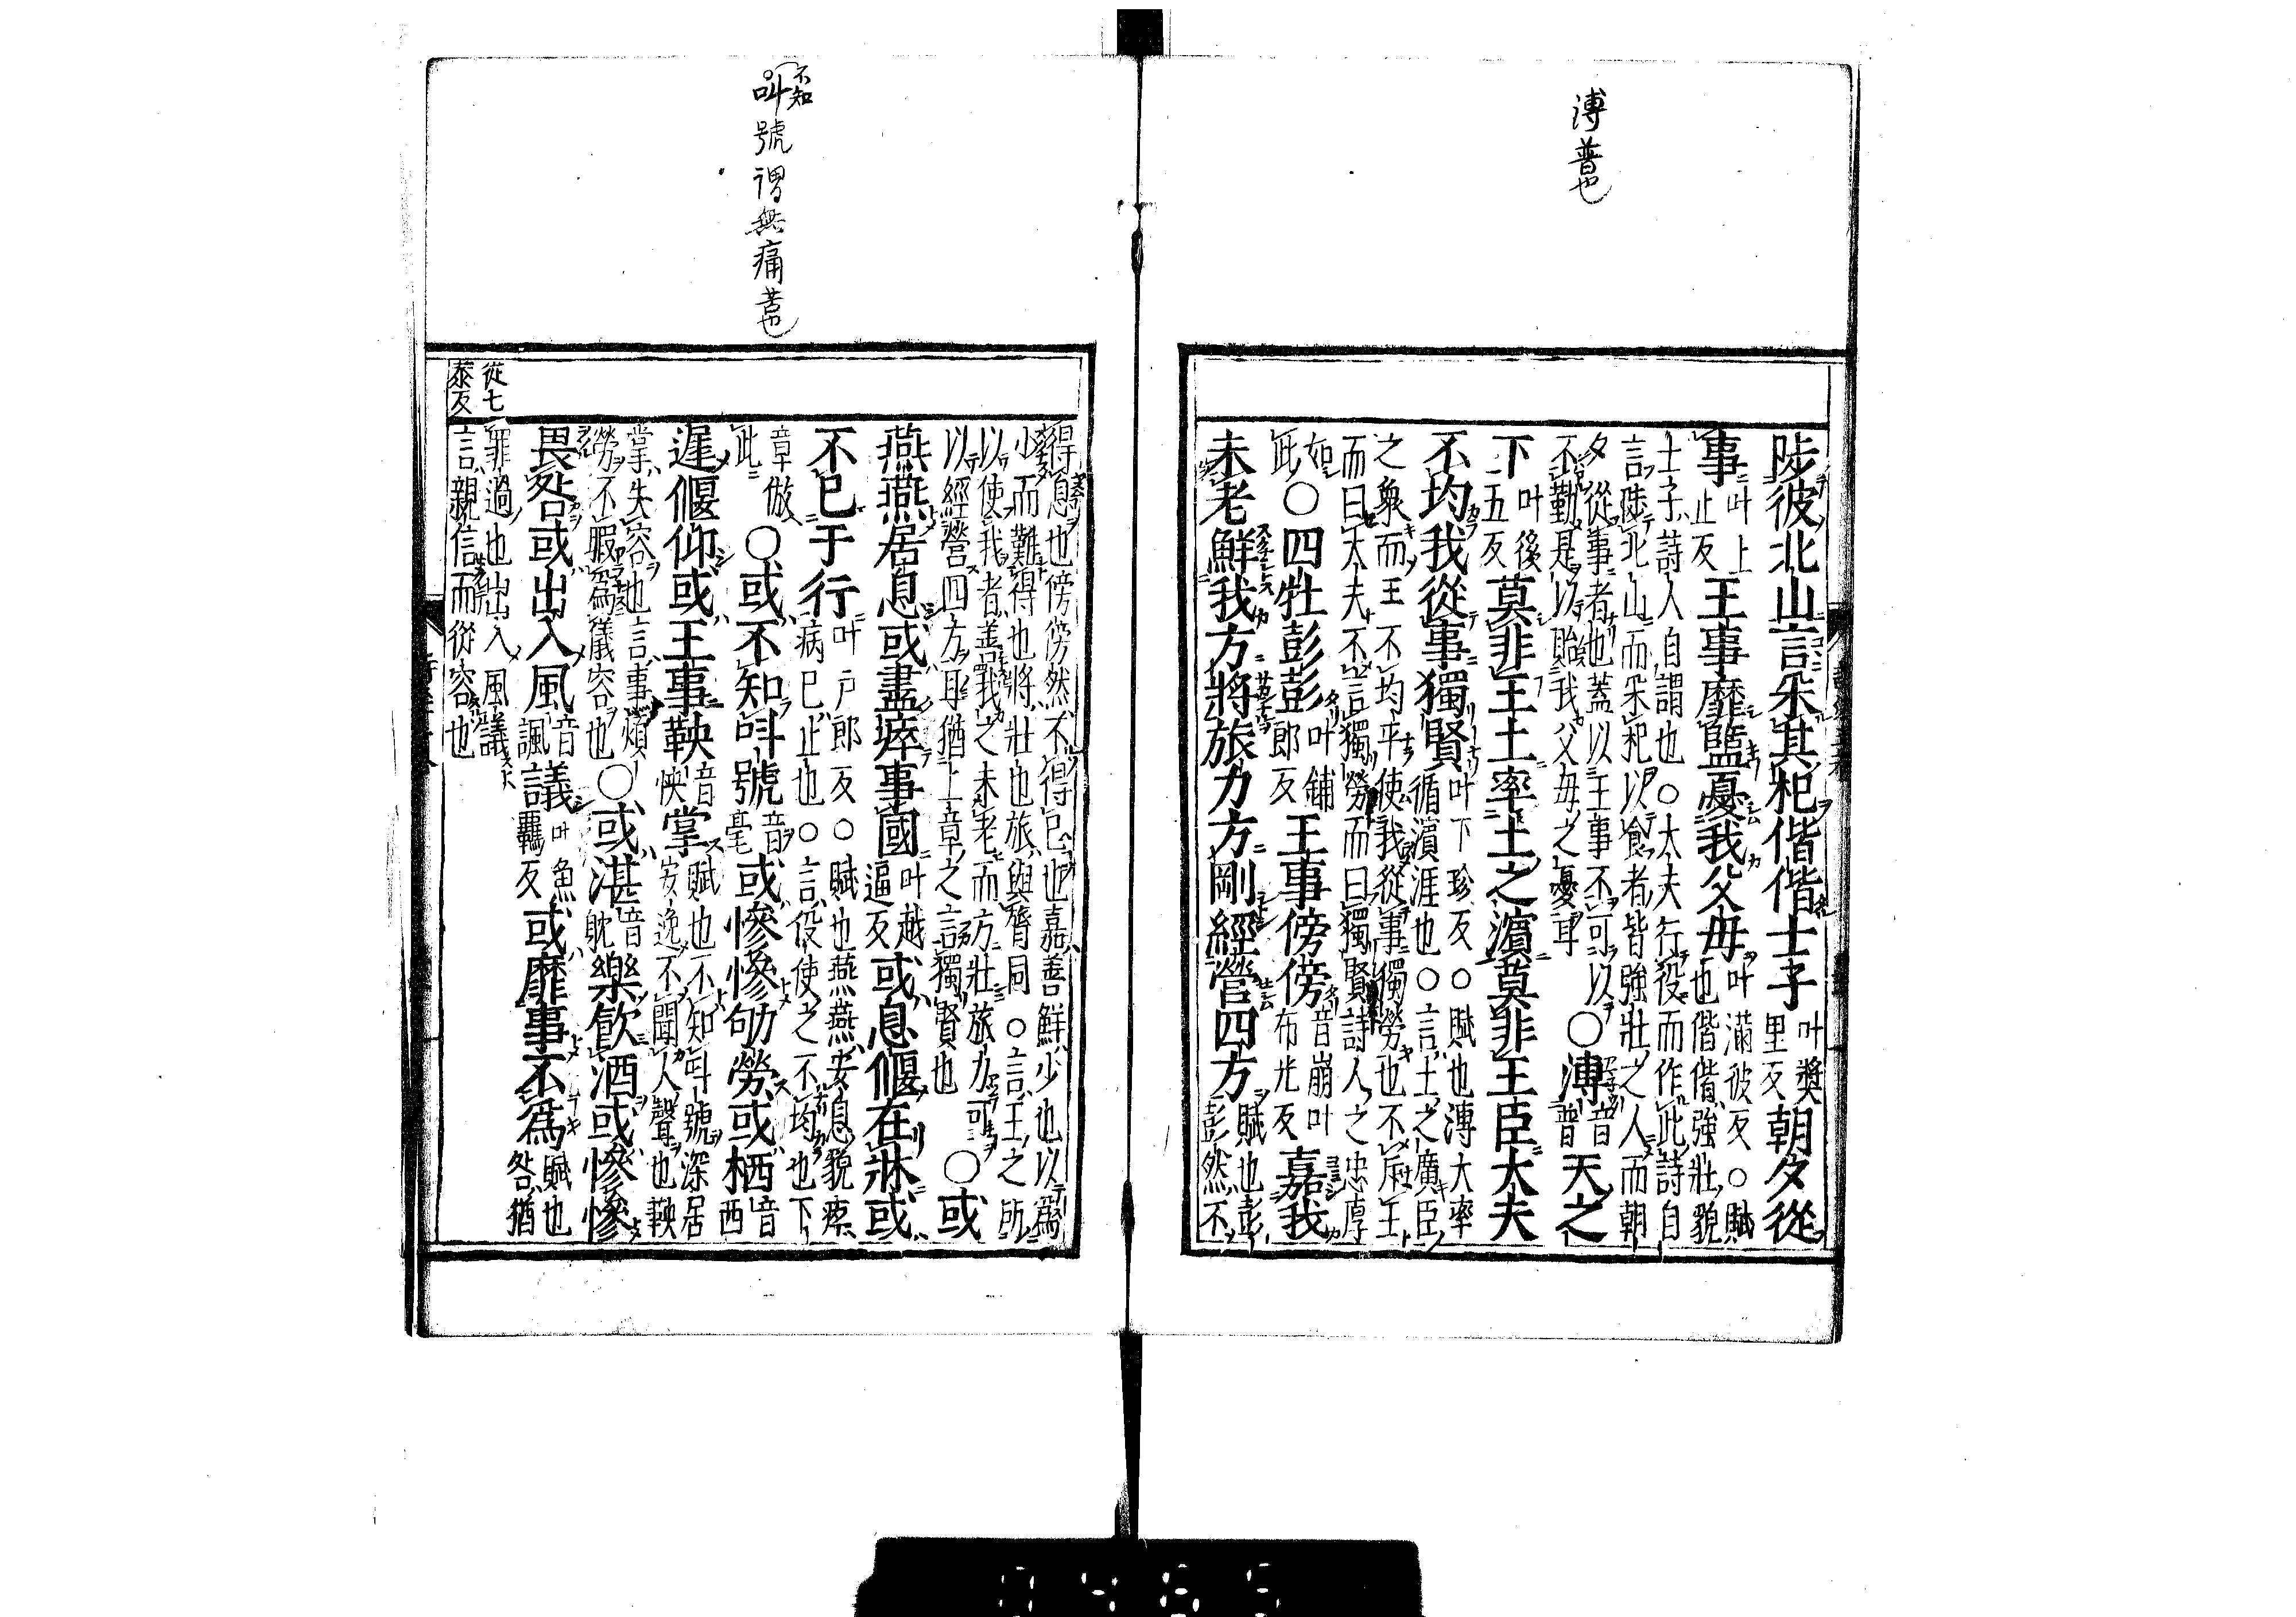 溥普也
陟彼北山言采其杞偕偕士子叶獎里反朝夕從
事叶上止反王事靡盬憂我父母叶滿彼反○賦也偕偕強壯貌
士子詩人自謂也○大夫行役而作此詩自
言陟北山而采杞以食者皆強壯之人而朝
夕從事者也蓋以王事不可以
不勤是以貽我父母之憂耳○溥音普天之
下叶後五反莫非王土率土之濱莫非王臣大夫
不均我從事獨賢叶下珍反○賦也溥大率循濱涯也○言土之廣臣
之衆而王不均平使我從事獨勞也不斥王
而曰大夫不言獨勞而曰獨賢詩人之忠厚
如此○四牡彭彭叶鋪郎反王事傍傍音崩叶布光反嘉我
未老鮮我方將旅力方剛經營四方賦也彭彭然不
不知叫號謂無痛苦也
得息也傍傍然不得已也嘉善鮮少也以爲
少而難得也將壯也旅與膂同○言王之所
以使我者善我之未老而方壯旅力可
以經營四方耳猶上章之言獨賢也○或
燕燕居息或盡瘁事國叶越逼反或息偃在牀或
不已于行叶戸郎反○賦也燕燕安息貌瘁病已止也○言役使之不均也下
章倣此○或不知叫號音毫或慘慘劬勞或栖音西
遲偃仰或王事鞅音怏掌賦也不知叫號深居安逸不聞人聲也鞅
掌失容也言事煩
勞不暇爲儀容也○或湛音耽樂飲酒或慘慘
畏咎或出入風音諷議叶魚羈反或靡事不爲賦也咎猶
罪過也出入風議
言親信而從容也
從七
泰反